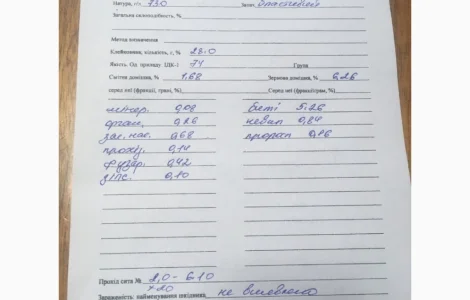 Натура, г/л 730 Запах властивий
Загальна склоподібність, %
Метод визначення
Клейковина, кількість, г, % 23.0
Якість. Од. приладу ІДК-1 74 Група
Сміттєва домішка, % 1.68 Зернова домішка, % 6.26
серед неї (фракції, грам, %) Серед неї (фракції/грам, %)
мінер. 0,08 биті 5.26
орган. 0,26 невип 0,84
зас. нас. 0,68 проросл 0,16
прохід. 0,14
фузар. 0,42
зіпс. 0,10
Прохід сита № 2,0 - 6.10
×20
Зараженість, найменування шкідника, не виявлено